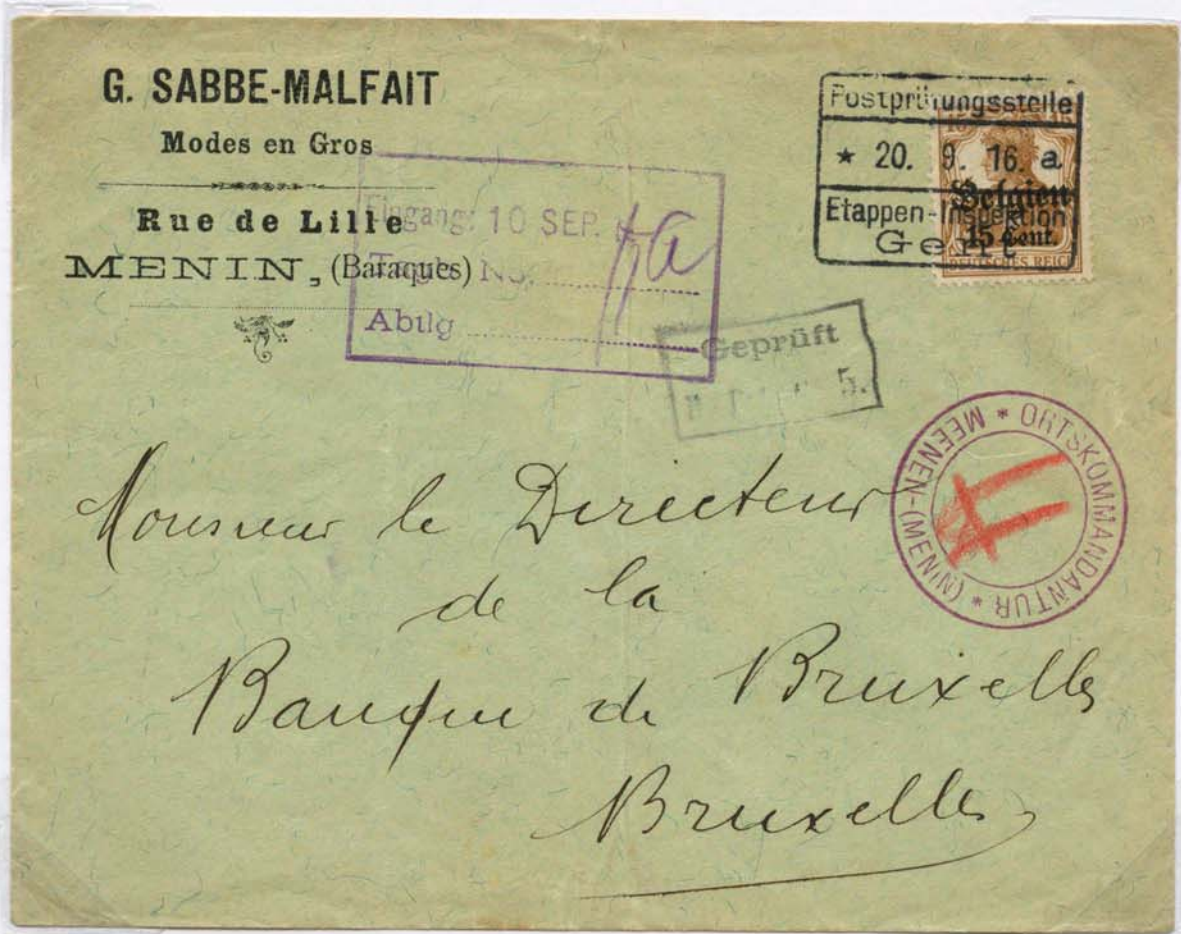 G. SABBE-MALFAIT
Modes en Gros
Rue de Lille
MENIN, (Baraques)
Eingang: 10 SEP.
Tagb. No.
Abtlg
Postprüfungsstelle
* 20. 9. 16. a
Etappen-Inspektion
Gent
Belgien
15 Cent.
DEUTSCHES REICH
Geprüft
5.
* ORTSKOMMANDANTUR *
MEENEN-(MENIN)
Monsieur le Directeur
de la
Banque de Bruxelles
Bruxelles